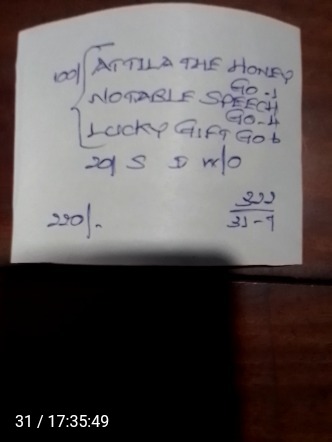 100/ ATTILA THE HONEY
GO-1
NOTABLE SPEECH
GO-4
LUCKY GIFT GO 6
20/ S D W/O
220/-
322
31-7
31 / 17:35:49